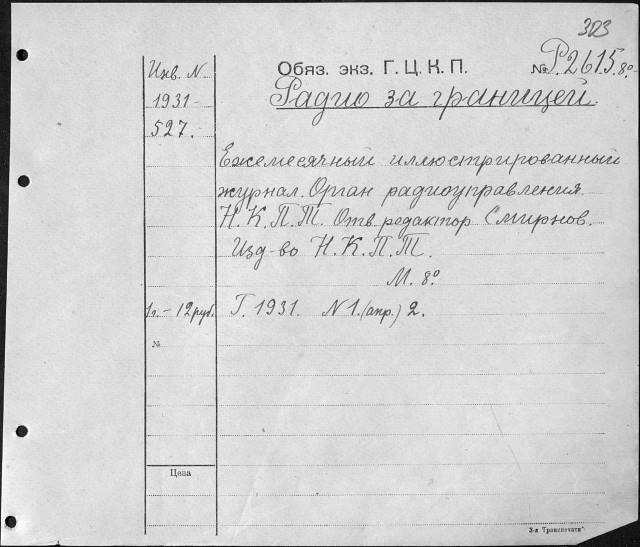 303
Инв. N
1931-
527.
Обяз. экз. Г. Ц. К. П. № Р2615. 8°
Радио за границей.
Ежемесячный иллюстрированный
журнал. Орган радиоуправления.
Н. К. П. Т. Отв. редактор Смирнов.
Изд-во Н. К. П. Т.
М. 8°
1 г. – 12 руб. Г. 1931. N 1. (апр.) 2.
№
Цена
3-я Транспечати